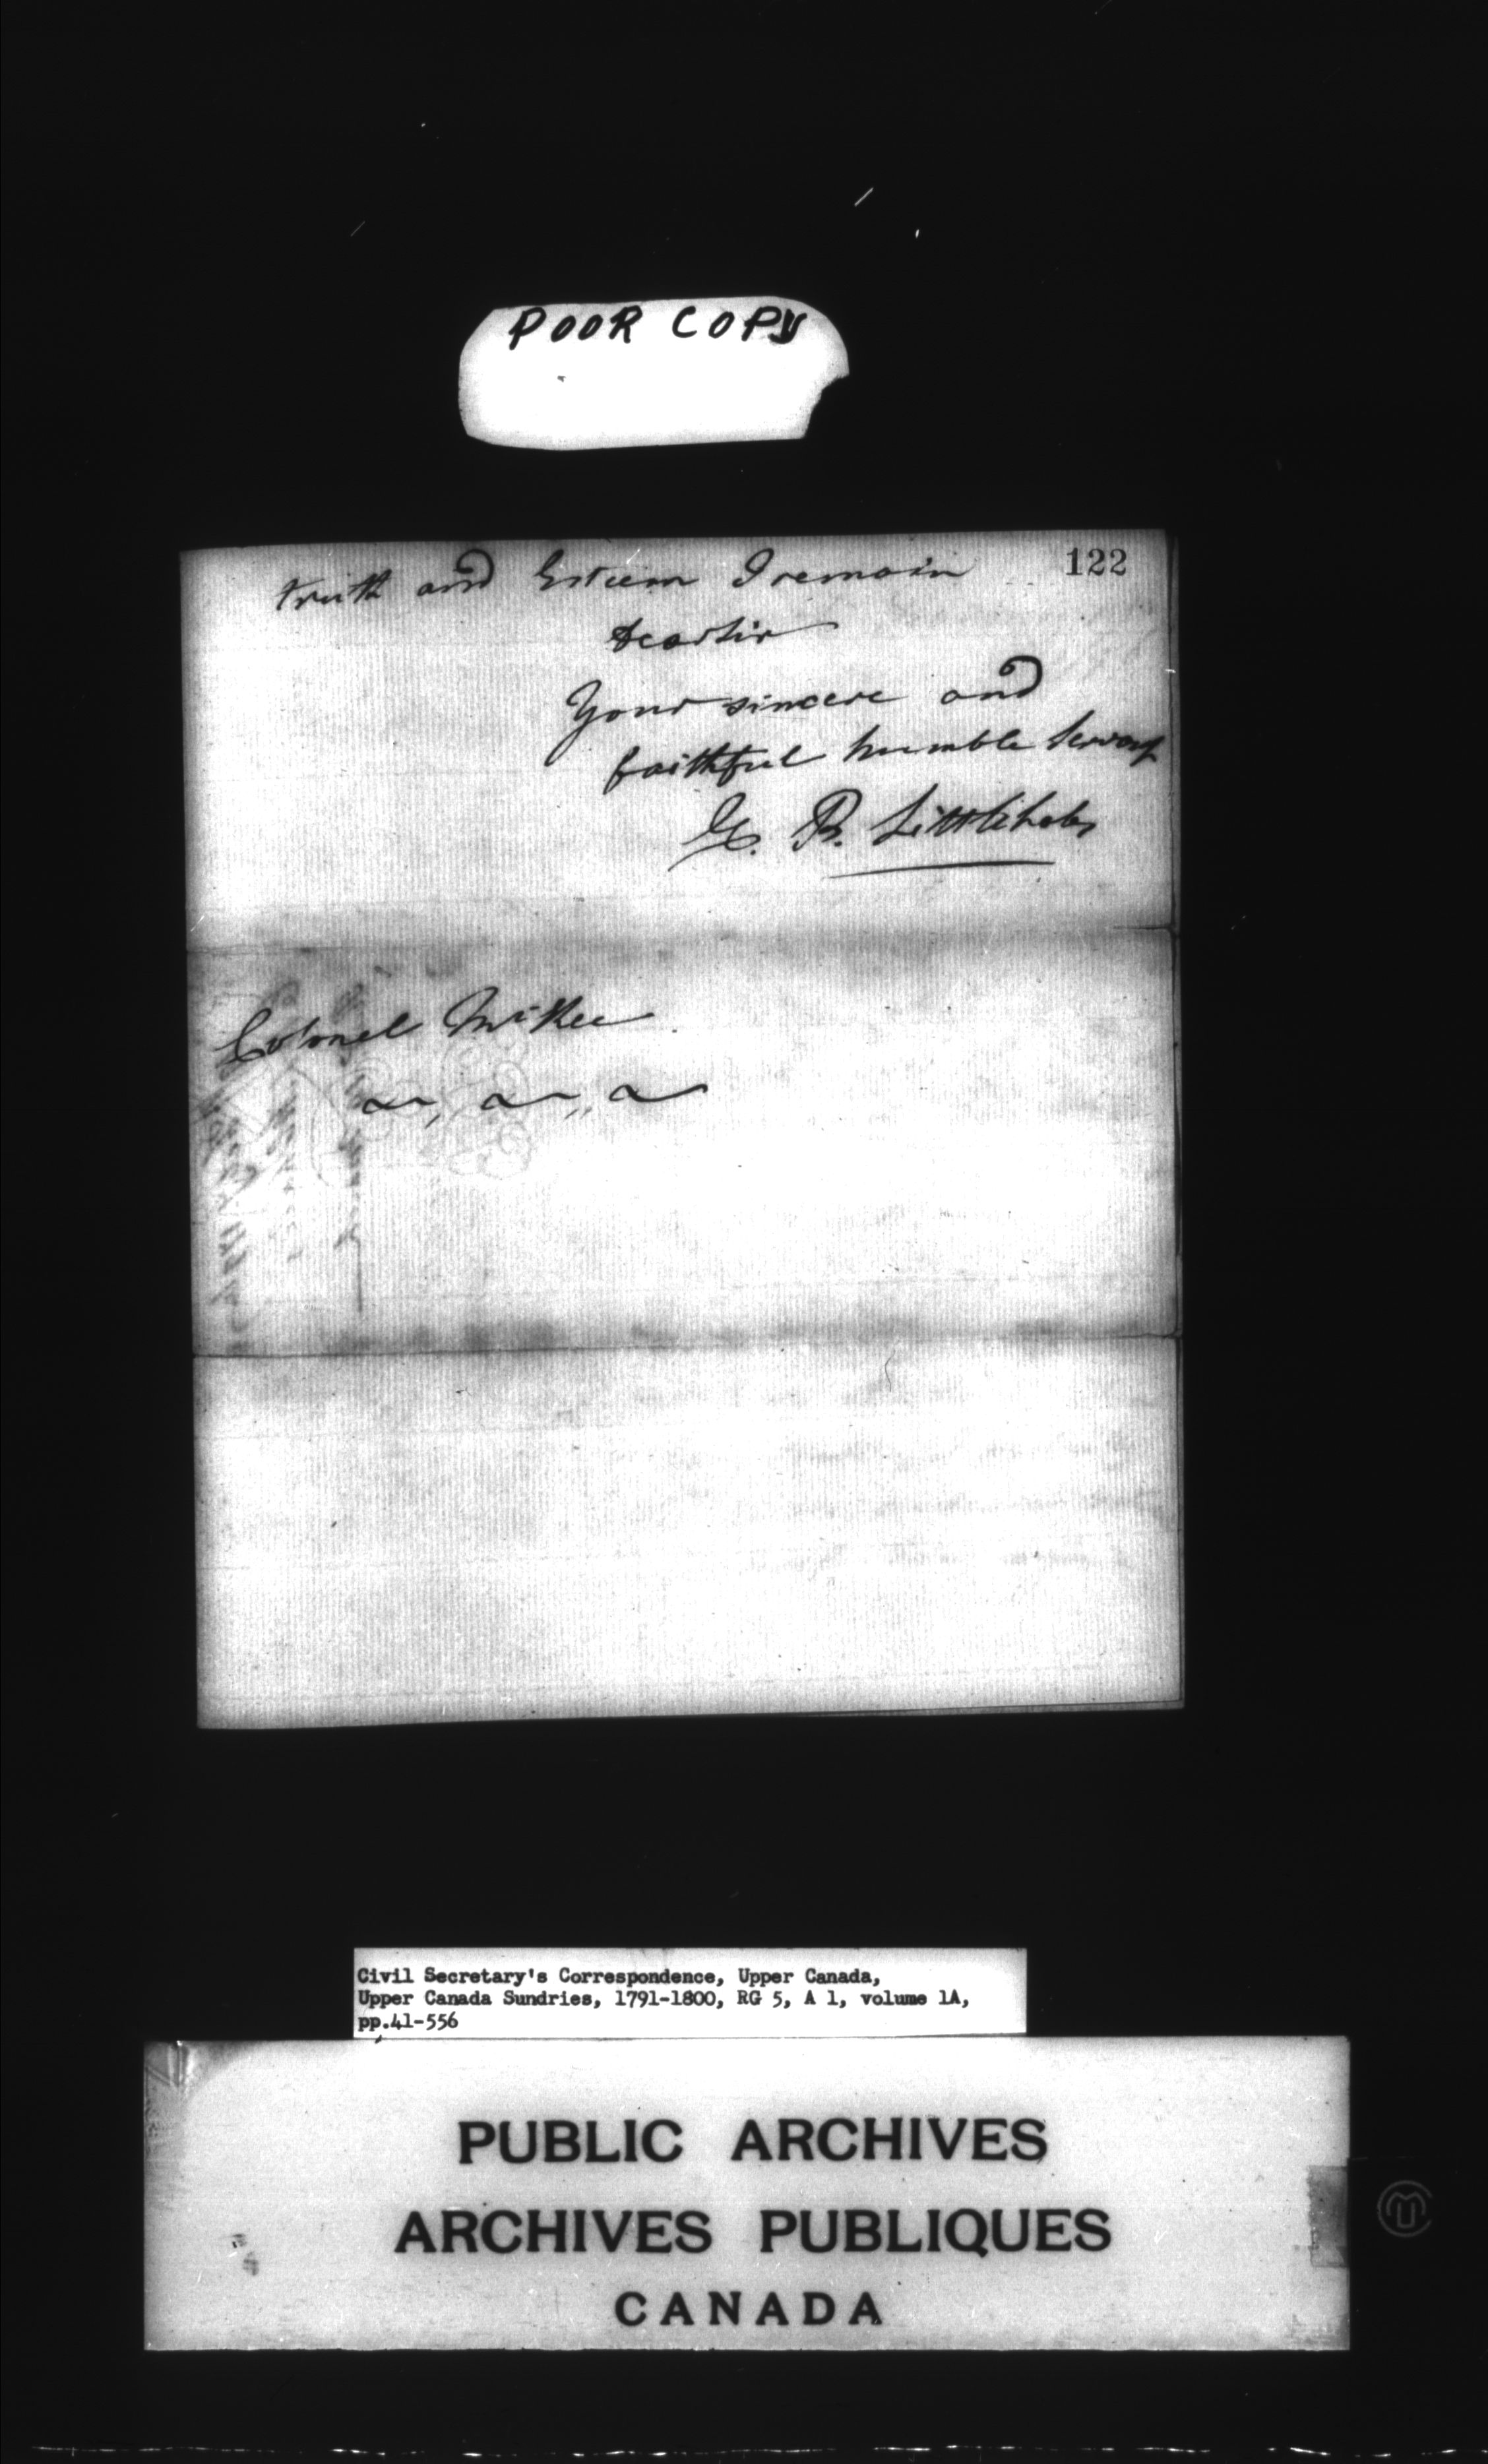 POOR COPY
122
truth and Esteem I remain
Dear Sir
Your sincere and
faithful humble Servant
E. B. Littlehales
Colonel McKee
Civil Secretary's Correspondence, Upper Canada,
Upper Canada Sundries, 1791-1800, RG 5, A 1, volume 1A,
pp.41-556
PUBLIC ARCHIVES
ARCHIVES PUBLIQUES
CANADA